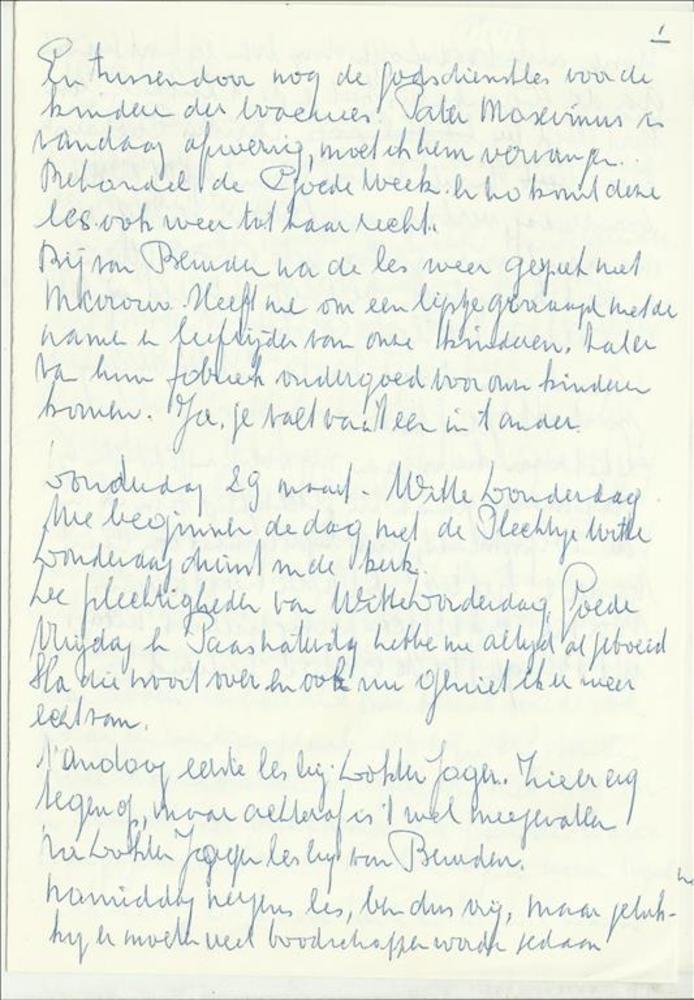 1
En tussendoor nog de godsdienstles voor de
kinderen der
vandaag afwezig, moet ik hem vervangen.
Behandel de Goede Week. En zo komt deze
les ook weer tot haar recht.
Bij van Beusden na de les weer gesprek met
Mevrouw. Heeft me om een lijstje gevraagd met de
namen en leeftijden van onze kinderen. Zal er
van hun fabriek ondergoed voor onze kinderen
komen. Ja, je valt van 't een in 't ander.
Donderdag 29 maart. Witte Donderdag
We beginnen de dag met de Plechtige Witte
Donderdag dienst in de kerk.
De plechtigheden van Witte Donderdag, Goede
Vrijdag en Paaszaterdag hebben me altijd al geboeid
Sla die nooit over en ook nu geniet ik er weer
echt van.
Vandaag eerste les bij Dokter Jager. Zie er erg
tegen op, maar achteraf is 't wel meegevallen
Na Dokter Jager les bij van Beusden.
Namiddag nergens les, ben dus vrij, maar geluk-
kig er moeten veel boodschappen worden gedaan